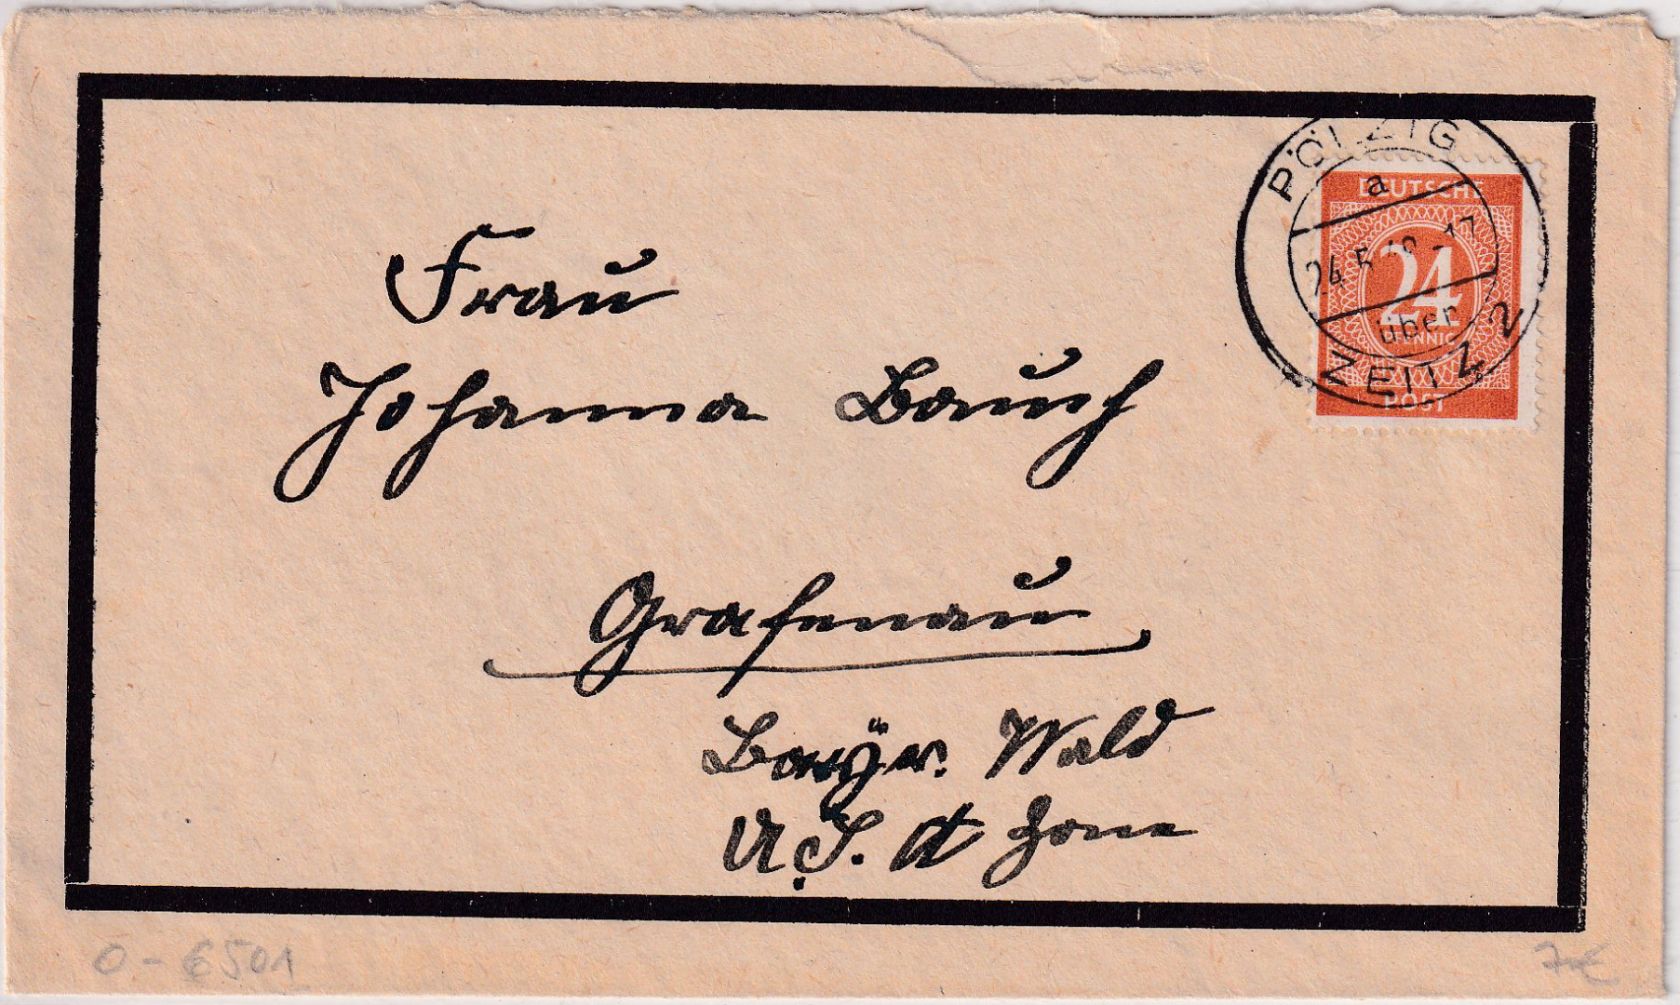 PÖLZIG
a
24.5.46-17
über
ZEITZ 2
DEUTSCHE
24
PFENNIG
POST
Frau
Johanna Bauch
Grafenau
Bayr. Wald
U.S.A Zone
O-6501
7€